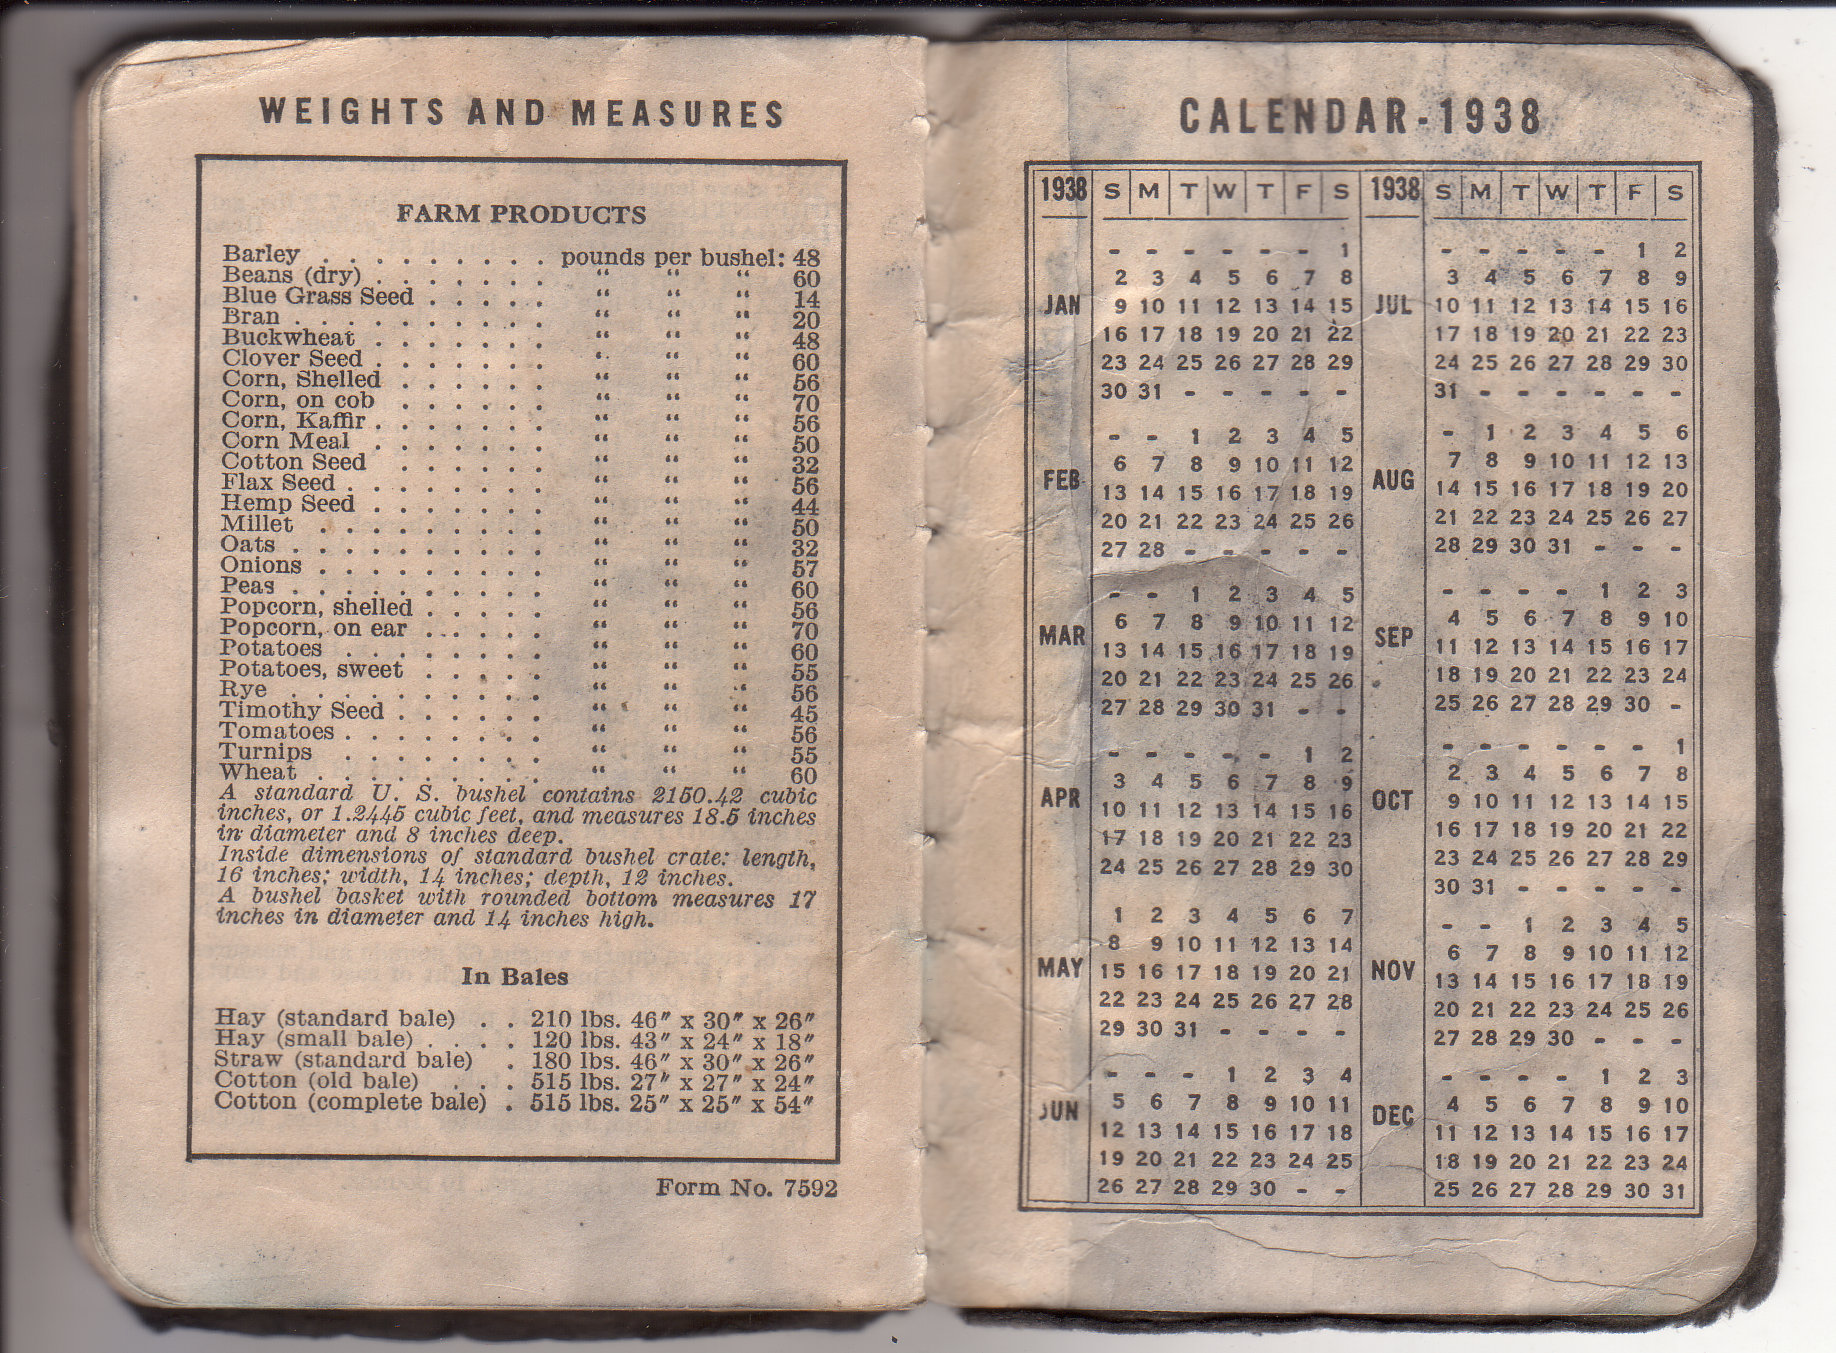 WEIGHTS AND MEASURES
FARM PRODUCTS
Barley . . . . . . . . . pounds per bushel: 48
Beans (dry) . . . . . . . “ “ “ 60
Blue Grass Seed . . . . . “ “ “ 14
Bran . . . . . . . . . . “ “ “ 20
Buckwheat . . . . . . . “ “ “ 48
Clover Seed . . . . . . . “ “ “ 60
Corn, Shelled . . . . . . “ “ “ 56
Corn, on cob . . . . . . “ “ “ 70
Corn, Kaffir . . . . . . . “ “ “ 56
Corn Meal . . . . . . . “ “ “ 50
Cotton Seed . . . . . . “ “ “ 32
Flax Seed . . . . . . . . “ “ “ 56
Hemp Seed . . . . . . . “ “ “ 44
Millet . . . . . . . . . “ “ “ 50
Oats . . . . . . . . . . “ “ “ 32
Onions . . . . . . . . . “ “ “ 57
Peas . . . . . . . . . . “ “ “ 60
Popcorn, shelled . . . . . “ “ “ 56
Popcorn, on ear . . . . . “ “ “ 70
Potatoes . . . . . . . . “ “ “ 60
Potatoes, sweet . . . . . “ “ “ 55
Rye . . . . . . . . . . “ “ “ 56
Timothy Seed . . . . . . “ “ “ 45
Tomatoes . . . . . . . . “ “ “ 56
Turnips . . . . . . . . “ “ “ 55
Wheat . . . . . . . . . “ “ “ 60
A standard U. S. bushel contains 2150.42 cubic
inches, or 1.2445 cubic feet, and measures 18.5 inches
in diameter and 8 inches deep.
Inside dimensions of standard bushel crate: length,
16 inches; width, 14 inches; depth, 12 inches.
A bushel basket with rounded bottom measures 17
inches in diameter and 14 inches high.
In Bales
Hay (standard bale) . . 210 lbs. 46″ x 30″ x 26″
Hay (small bale) . . . . 120 lbs. 43″ x 24″ x 18″
Straw (standard bale) . 180 lbs. 46″ x 30″ x 26″
Cotton (old bale) . . . 515 lbs. 27″ x 27″ x 24″
Cotton (complete bale) . 515 lbs. 25″ x 25″ x 54″
Form No. 7592
CALENDAR-1938
1938 S M T W T F S
JAN
- - - - - - 1
2 3 4 5 6 7 8
9 10 11 12 13 14 15
16 17 18 19 20 21 22
23 24 25 26 27 28 29
30 31 - - - - -
FEB
- - 1 2 3 4 5
6 7 8 9 10 11 12
13 14 15 16 17 18 19
20 21 22 23 24 25 26
27 28 - - - - -
MAR
- - 1 2 3 4 5
6 7 8 9 10 11 12
13 14 15 16 17 18 19
20 21 22 23 24 25 26
27 28 29 30 31 - -
APR
- - - - - 1 2
3 4 5 6 7 8 9
10 11 12 13 14 15 16
17 18 19 20 21 22 23
24 25 26 27 28 29 30
MAY
1 2 3 4 5 6 7
8 9 10 11 12 13 14
15 16 17 18 19 20 21
22 23 24 25 26 27 28
29 30 31 - - - -
JUN
- - - 1 2 3 4
5 6 7 8 9 10 11
12 13 14 15 16 17 18
19 20 21 22 23 24 25
26 27 28 29 30 - -
1938 S M T W T F S
JUL
- - - - - 1 2
3 4 5 6 7 8 9
10 11 12 13 14 15 16
17 18 19 20 21 22 23
24 25 26 27 28 29 30
31 - - - - - -
AUG
- 1 2 3 4 5 6
7 8 9 10 11 12 13
14 15 16 17 18 19 20
21 22 23 24 25 26 27
28 29 30 31 - - -
SEP
- - - - 1 2 3
4 5 6 7 8 9 10
11 12 13 14 15 16 17
18 19 20 21 22 23 24
25 26 27 28 29 30 -
OCT
- - - - - - 1
2 3 4 5 6 7 8
9 10 11 12 13 14 15
16 17 18 19 20 21 22
23 24 25 26 27 28 29
30 31 - - - - -
NOV
- - 1 2 3 4 5
6 7 8 9 10 11 12
13 14 15 16 17 18 19
20 21 22 23 24 25 26
27 28 29 30 - - -
DEC
- - - - 1 2 3
4 5 6 7 8 9 10
11 12 13 14 15 16 17
18 19 20 21 22 23 24
25 26 27 28 29 30 31